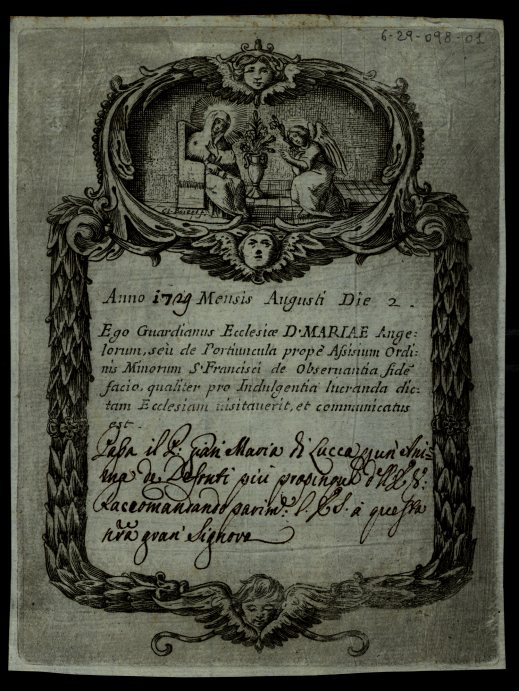 6-29-098-01
Anno 1729 Mensis Augusti Die 2.
Ego Guardianus Ecclesiæ D. MARIAE Ange=
lorum, seù de Portiuncula propè Assisium Ordi=
nis Minorum S. Francisci de Obseruantia fidē
facio, qualiter pro Indulgentia lucranda dic=
tam Ecclesiam uisitauerit, et communicatus
est.
il P. Gian Maria di Lucca Ani=
ma de Defonti più
Raccomandando parimᵉ. à questa
nrã gran Signora